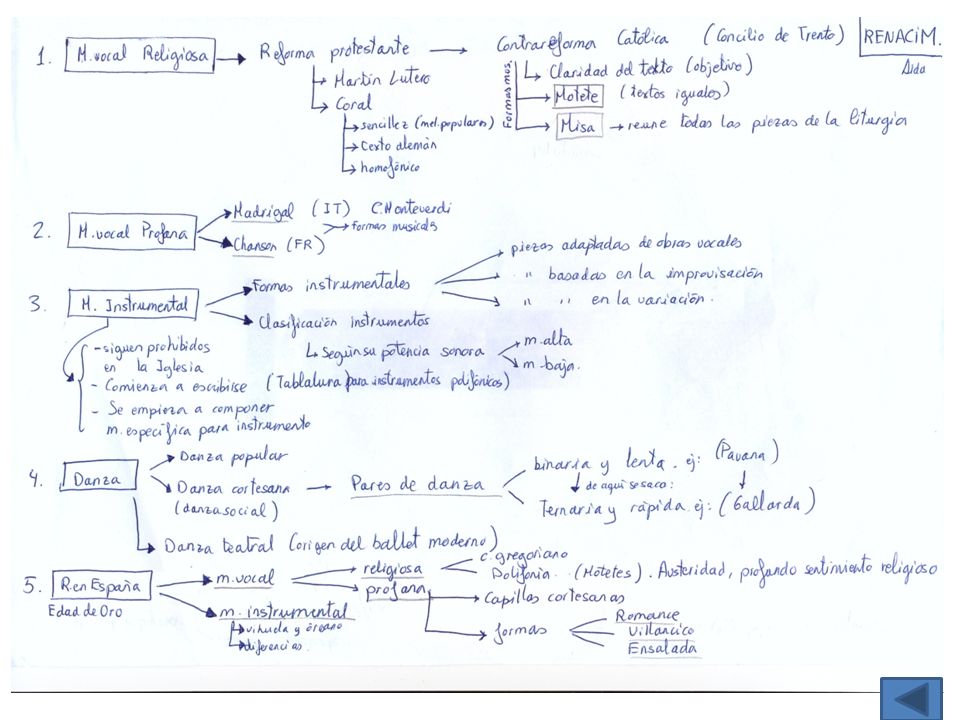 1. M. vocal Religiosa → Reforma protestante → Contrareforma Católica (Concilio de Trento) RENACIM.
Aida
Martín Lutero
Coral
sencillez (mel. populares)
texto alemán
homofónico
Formas mus.
Claridad del texto (objetivo)
Motete (textos iguales)
Misa → reune todas las piezas de la liturgia
2. M. vocal Profana
Madrigal (IT) C. Monteverdi
formas musicals
Chanson (FR)
3. M. Instrumental
Formas instrumentales
piezas adaptadas de obras vocales
" basadas en la improvisación
" " en la variación.
Clasificación instrumentos
Según su potencia sonora
m. alta
m. baja.
- siguen prohibidos
en la Iglesia
- Comienza a escribirse (Tablatura para instrumentos polifónicos)
- Se empieza a componer
m. específica para instrumento
4. Danza
Danza popular
Danza cortesana
(danza social)
Pares de danza
binaria y lenta. ej: (Pavana)
de aquí se saca:
Ternaria y rápida. ej: (Gallarda)
Danza teatral (origen del ballet moderno)
5. R. en España
Edad de Oro
m. vocal
religiosa
c. gregoriano
Polifonía. (Motetes). Austeridad, profundo sentimiento religioso
profana
Capillas cortesanas
formas
Romance
Villancico
Ensalada
m. instrumental
vihuela y órgano
diferencias.